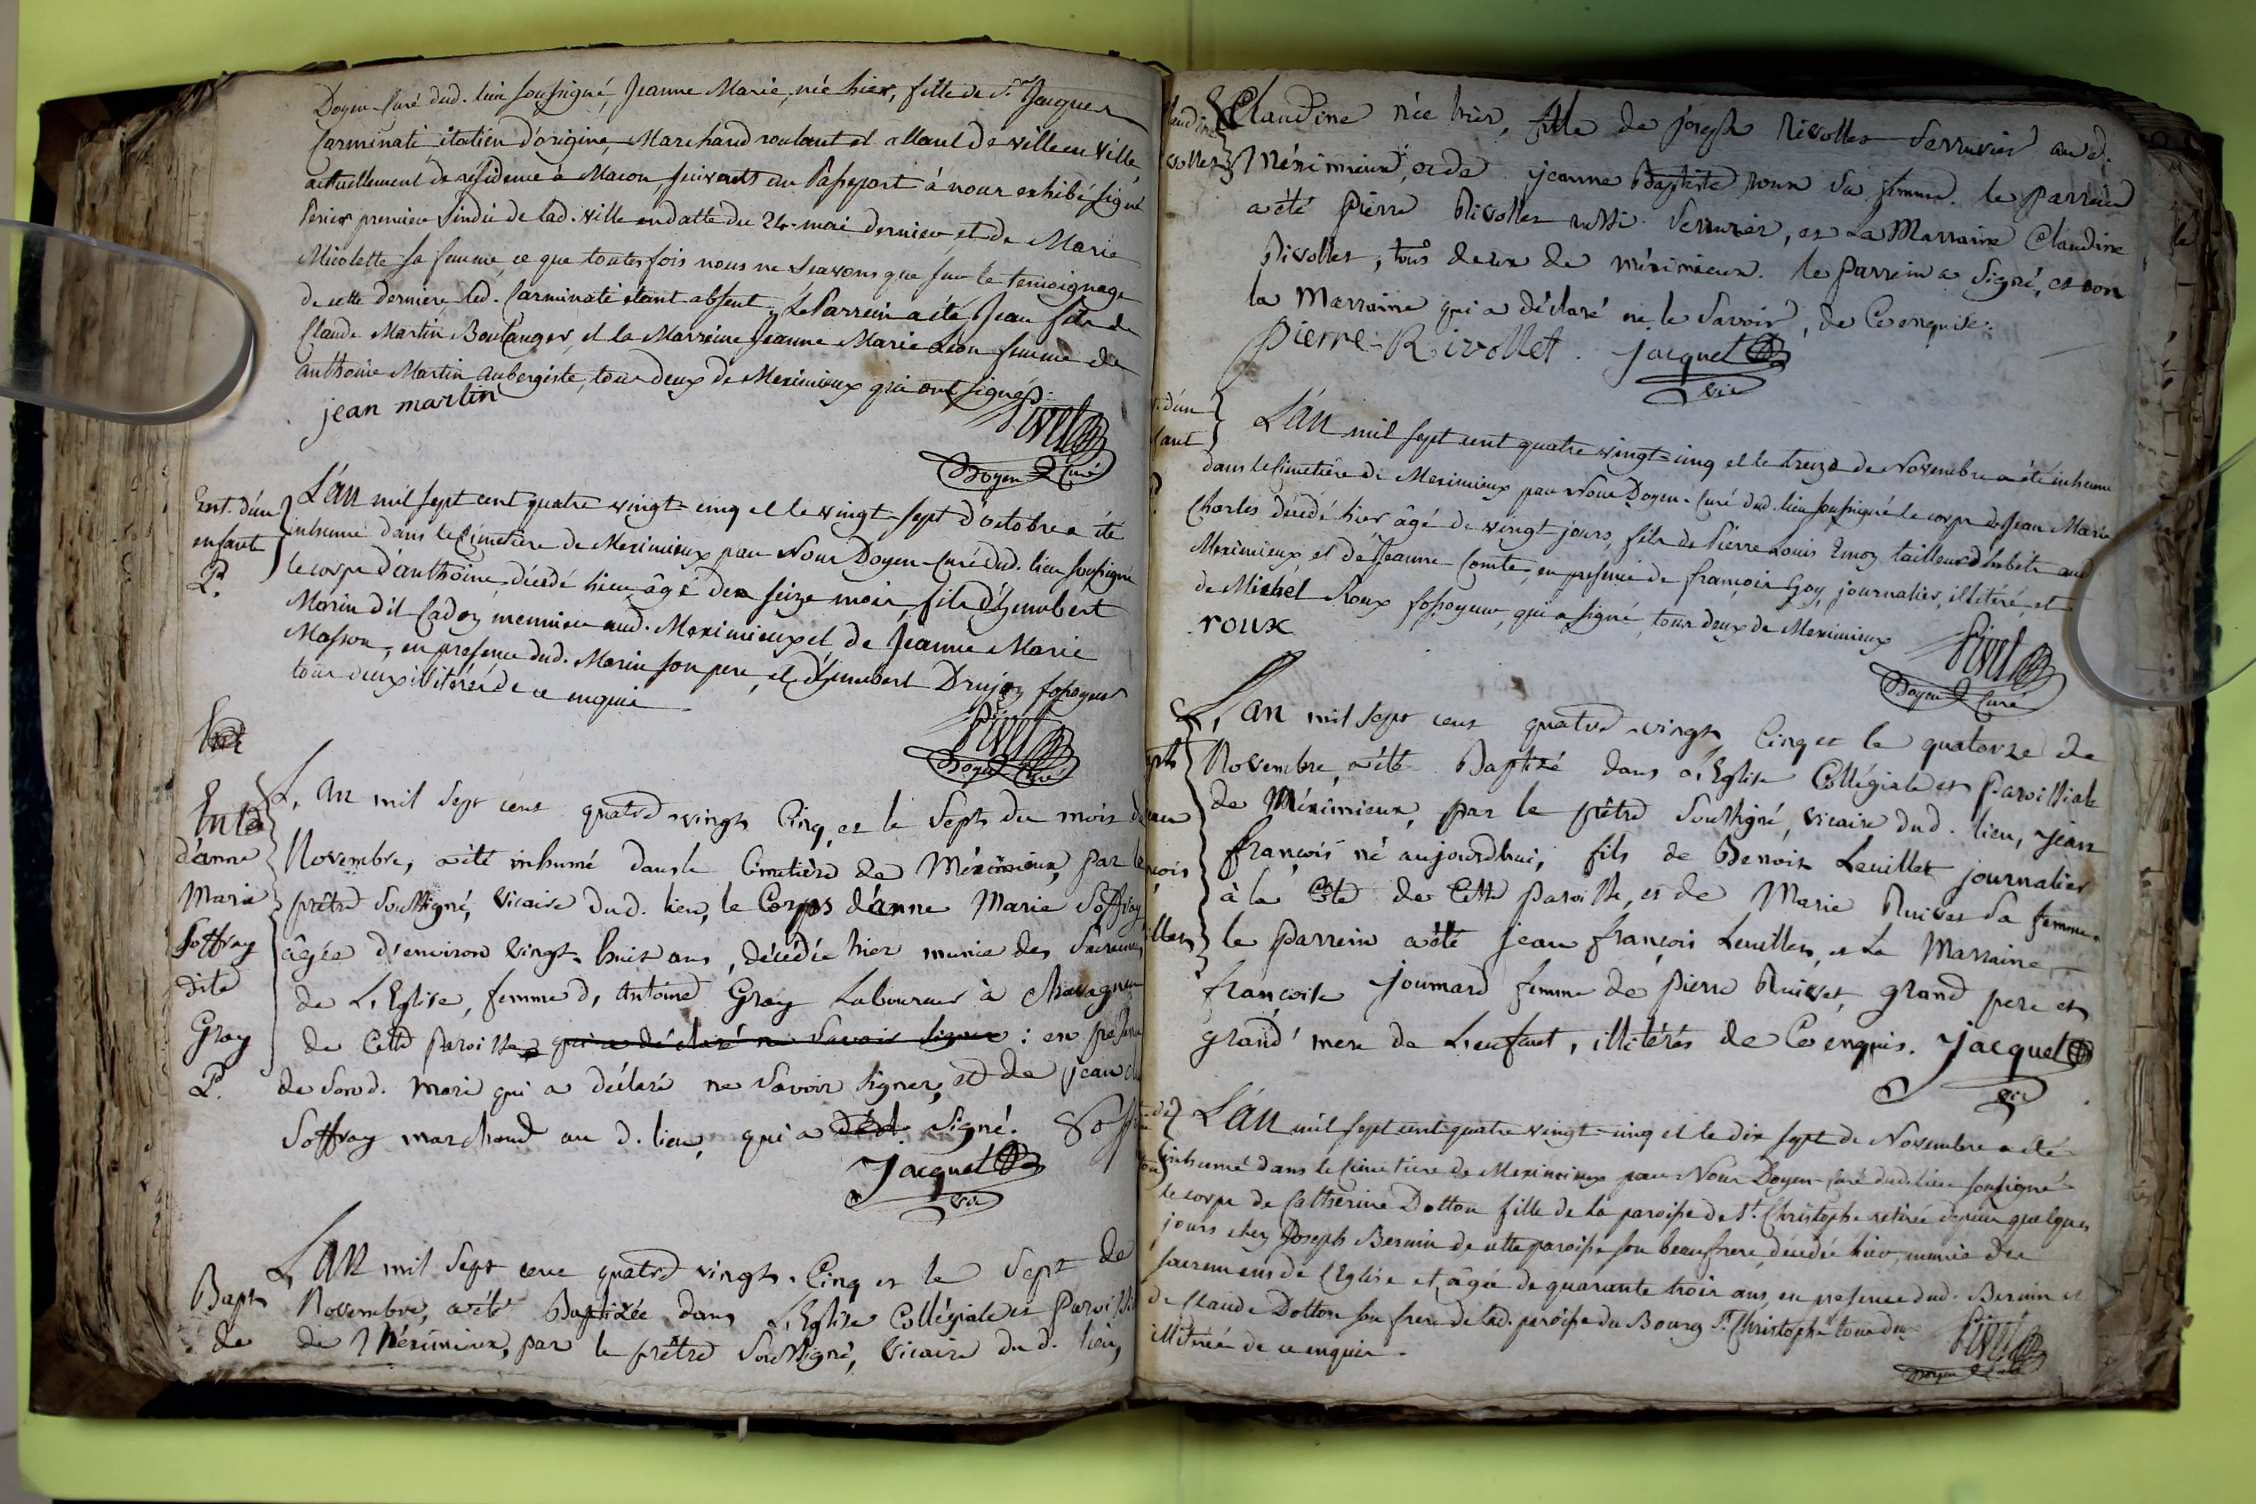 Doyen-Curé dud. lieu soussigné, Jeanne Marie, née hier, fille de Sr. Jacques
Carminati italien d'origine, Marchand roulant et allant de ville en ville,
actuellement de résidence à Macon, suivants un Passeport à nous exhibé signé
premier Sindic de lad. ville en datte du 24. mai dernier et de Marie
Nicolette sa femme, ce que toutes fois nous ne sçavons que sur le temoignage
de cette derniere led. Carminati etant absent. Le Parrein a été Jean fils de
Claude Martin Boulanger, et la Marreine Jeanne Marie femme de
anthoine Martin aubergiste, tous deux de Meximieux qui ont signés.
jean martin
Pivet
Doyen Curé
Ent. d'un
enfant
P.
L'an mil sept cent quatre vingt-cinq et le vingt-sept d'octobre a été
inhumé dans le Cimetiere de Meximieux par Nous Doyen-Curé dud. lieu soussigné
le corps d'anthoine, décédé hier, âgé de seize mois, fils d'hymbert
Marin dit Cadoz meunier aud. Meximieux et de Jeanne Marie
Masson, en presence dud. Marin son pere, et d'hymbert Drujon fossoyeur
tous deux illitérés de ce enquis
Pivet
Doyen Curé
Entt
d'anne
Marie
Soffray
dite
Gray
P.
L'An mil sept cent quatre vingts Cinq, et le Sept du mois de
Novembre, a été inhumé dans le Cimetière de Méximieux, par le
prêtre soussigné, vicaire dud. lieu, le Corps d'anne Marie Soffray
âgée d'environ vingt-huit ans, décédée hier munie des Sacremens
de L'Eglise, femme d'Antoine Gray Laboureur à Chavagneu
de Cette paroisse, qui a déclaré ne savoir signer : en présence
de Sond. mari qui a déclaré ne Savoir Signer, et de jean
Soffray marchand au d. lieu, qui a décl. signé. Soff
Jacquet
vic
Bapt
de
L'AN mil Sept cent quatre vingts. Cinq et le Sept de
Novembre, a été Baptizée dans L'Eglise Collégiale et Paroissi
de Méximieux, par le prêtre soussigné, vicaire du d. lieu,
Claudine née hier, fille de joseph Rivollet Serrurier au d.
Méximieux, et de jeanne Baptiste sa femme. le parrein
a été pierre Rivollet aussi Serrurier, et La Marraine Claudine
Rivollet, tous deux de méximieux. le parrein a Signé, et non
la Marraine qui a déclaré ne le Savoir, de Ce enquise.
pierre Rivollet. Jacquet
vic
L'AN mil sept cent quatre vingt-cinq et le treize de Novembre a été inhumé
dans le Cimetière de Meximieux par Nous Doyen-Curé dud. lieu soussigné le corps de Jean Marie
Charles décédé hier âgé de vingt jours, fils de Pierre Louis tailleur d'habits aud.
Meximieux et de Jeanne Comte, en presence de françois Goy, journalier, illitéré, et
de Michel Roux fossoyeur, qui a signé, tous deux de Meximieux
roux
Pivet
Doyen Curé
L'an mil sept cent quatre vingts Cinq et le quatorze de
Novembre, a été Baptizé dans L'Eglise Collégiale et Paroissiale
de Méximieux, par le prêtre Soussigné, vicaire dud. lieu, jean
françois né aujourdhui, fils de Benoit Leuillet journalier
à la Côte de Cette paroisse, et de Marie Ruivet sa femme.
le parrein a été jean françois Leuillet, et La Marraine
françoise Joumard femme de pierre Ruivet grand pere et
grand'mere de L'enfant, illitérés de Ce enquis. Jacquet
vic
L'AN mil sept cent quatre vingt-cinq et le dix sept de Novembre a été
inhumé dans le Cimetiere de Meximieux par Nous Doyen-Curé dud. lieu soussigné
le corps de Catherine Dotton fille de la paroisse de St. Christophe retirée depuis quelques
jours chez Joseph Bernin de cette paroisse son beaufrere, décédée hier, munie des
sacremens de l'Eglise et âgée de quarante trois ans, en presence dud. Bernin et
de Claude Dotton son frere de lad. paroisse du Bourg St. Christophe tous deux
illitérés de ce enquis.
Pivet
Doyen Curé